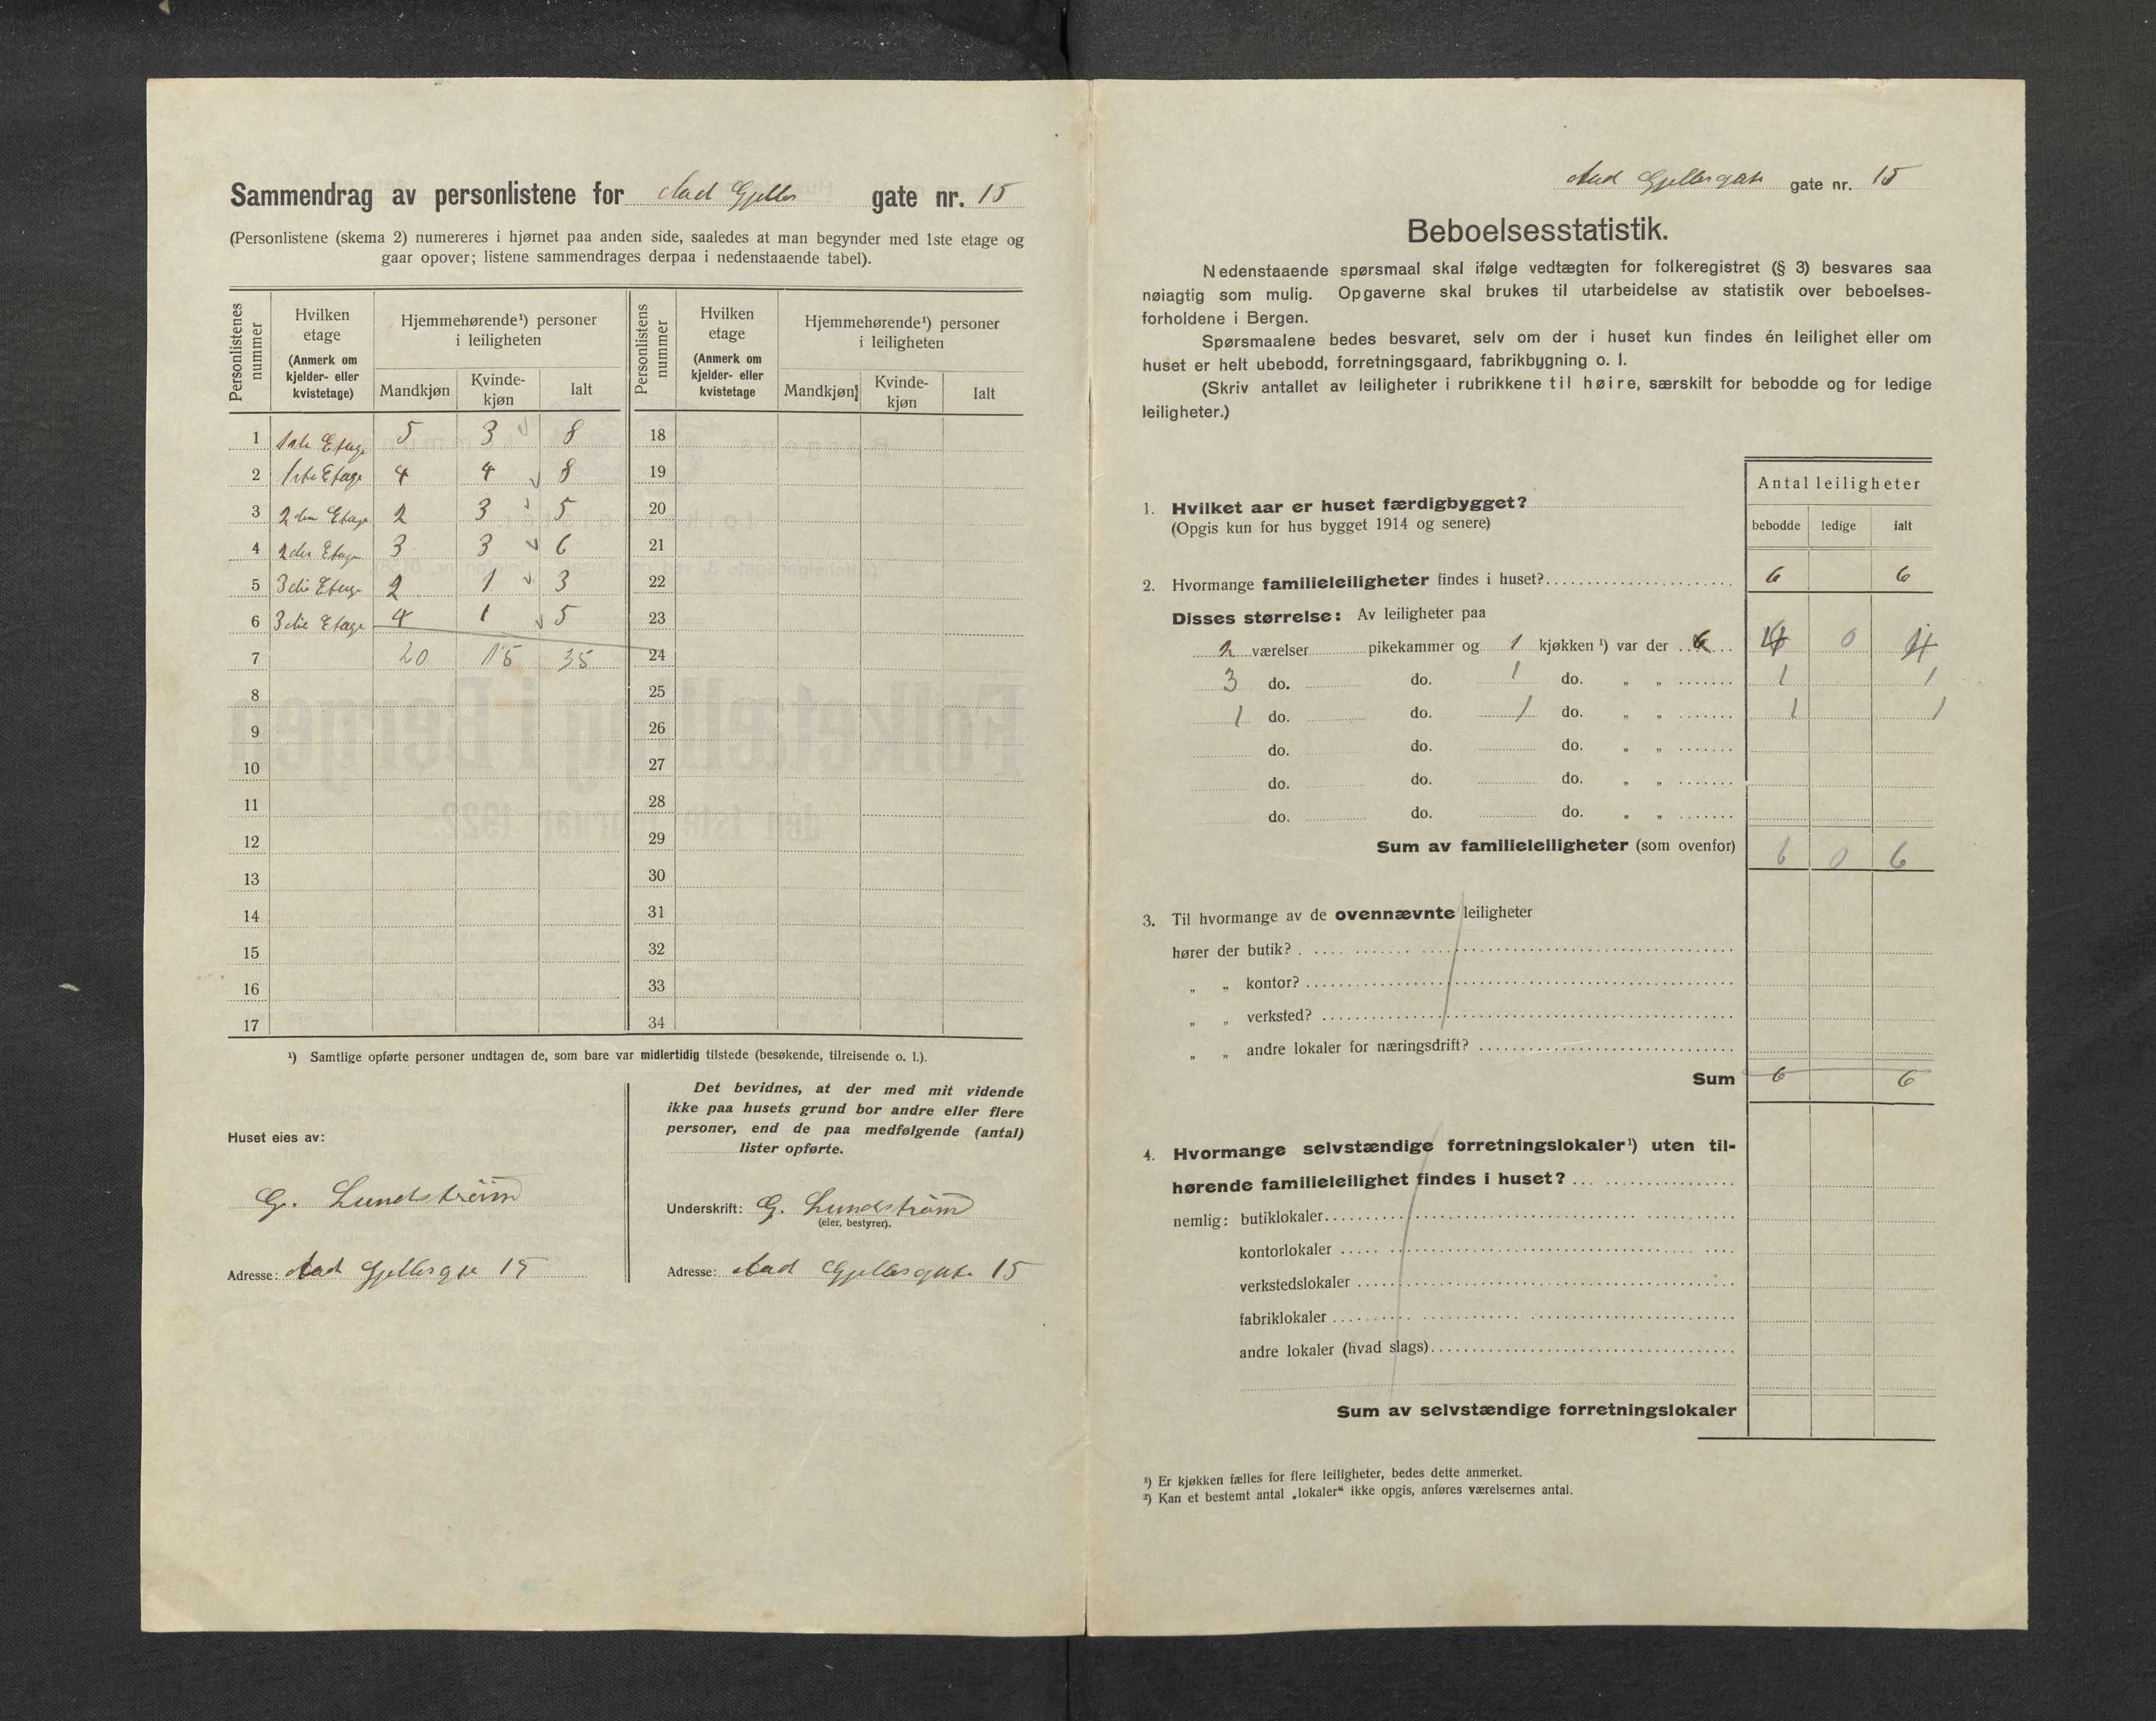 Sammendrag av personlistene for Aad Gjelles gate nr. 15
(Personlistene (skema 2) numereres i hjørnet paa anden side, saaledes at man begynder med 1ste etage og
gaar opover; listene sammendrages derpaa i nedenstaaende tabel).
Personlistenes nummer | Hvilken etage (Anmerk om kjelder- eller kvistetage) | Hjemmehørende¹) personer i leiligheten | Personlistens nummer | Hvilken etage (Anmerk om kjelder- eller kvistetage | Hjemmehørende¹) personer i leiligheten
Mandkjøn | Kvinde-kjøn | Ialt | Mandkjøn | Kvinde-kjøn | Ialt
1 1ste Etage 5 3 8 18
2 1ste Etage 4 4 8 19
3 2den Etage 2 3 5 20
4 2den Etage 3 3 6 21
5 3die Etage 2 1 3 22
6 3die Etage 4 1 5 23
7 20 15 35 24
8 25
9 26
10 27
11 28
12 29
13 30
14 31
15 32
16 33
17 34
¹) Samtlige opførte personer undtagen de, som bare var midlertidig tilstede (besøkende, tilreisende o. l.).
Huset eies av:
G. Lundström
Adresse: Aad Gjellesgte 15
Det bevidnes, at der med mit vidende
ikke paa husets grund bor andre eller flere
personer, end de paa medfølgende (antal)
lister opførte.
Underskrift: G. Lundström
(eier, bestyrer).
Adresse: Aad Gjellesgate 15
Aad Gjellesgate gate nr. 15
Beboelsesstatistik.
Nedenstaaende spørsmaal skal ifølge vedtægten for folkeregistret (§ 3) besvares saa
nøiagtig som mulig. Opgaverne skal brukes til utarbeidelse av statistik over beboelses-
forholdene i Bergen.
Spørsmaalene bedes besvaret, selv om der i huset kun findes én leilighet eller om
huset er helt ubebodd, forretningsgaard, fabrikbygning o. l.
(Skriv antallet av leiligheter i rubrikkene til høire, særskilt for bebodde og for ledige
leiligheter.)
Antal leiligheter
bebodde ledige ialt
1. Hvilket aar er huset færdigbygget?
(Opgis kun for hus bygget 1914 og senere)
2. Hvormange familieleiligheter findes i huset? 6 6
Disses størrelse: Av leiligheter paa
2 værelser pikekammer og 1 kjøkken ¹) var der 4 0 4
3 do. do. 1 do. „ „ 1 1
1 do. do. 1 do. „ „ 1 1
do. do. do. „ „
do. do. do. „ „
do. do. do. „ „
Sum av familieleiligheter (som ovenfor) 6 0 6
3. Til hvormange av de ovennævnte leiligheter
hører der butik?
„ „ kontor?
„ „ verksted?
„ „ andre lokaler for næringsdrift?
Sum 6 6
4. Hvormange selvstændige forretningslokaler¹) uten til-
hørende familieleilighet findes i huset?
nemlig: butiklokaler
kontorlokaler
verkstedslokaler
fabriklokaler
andre lokaler (hvad slags)
Sum av selvstændige forretningslokaler
¹) Er kjøkken fælles for flere leiligheter, bedes dette anmerket.
²) Kan et bestemt antal „lokaler“ ikke opgis, anføres værelsernes antal.